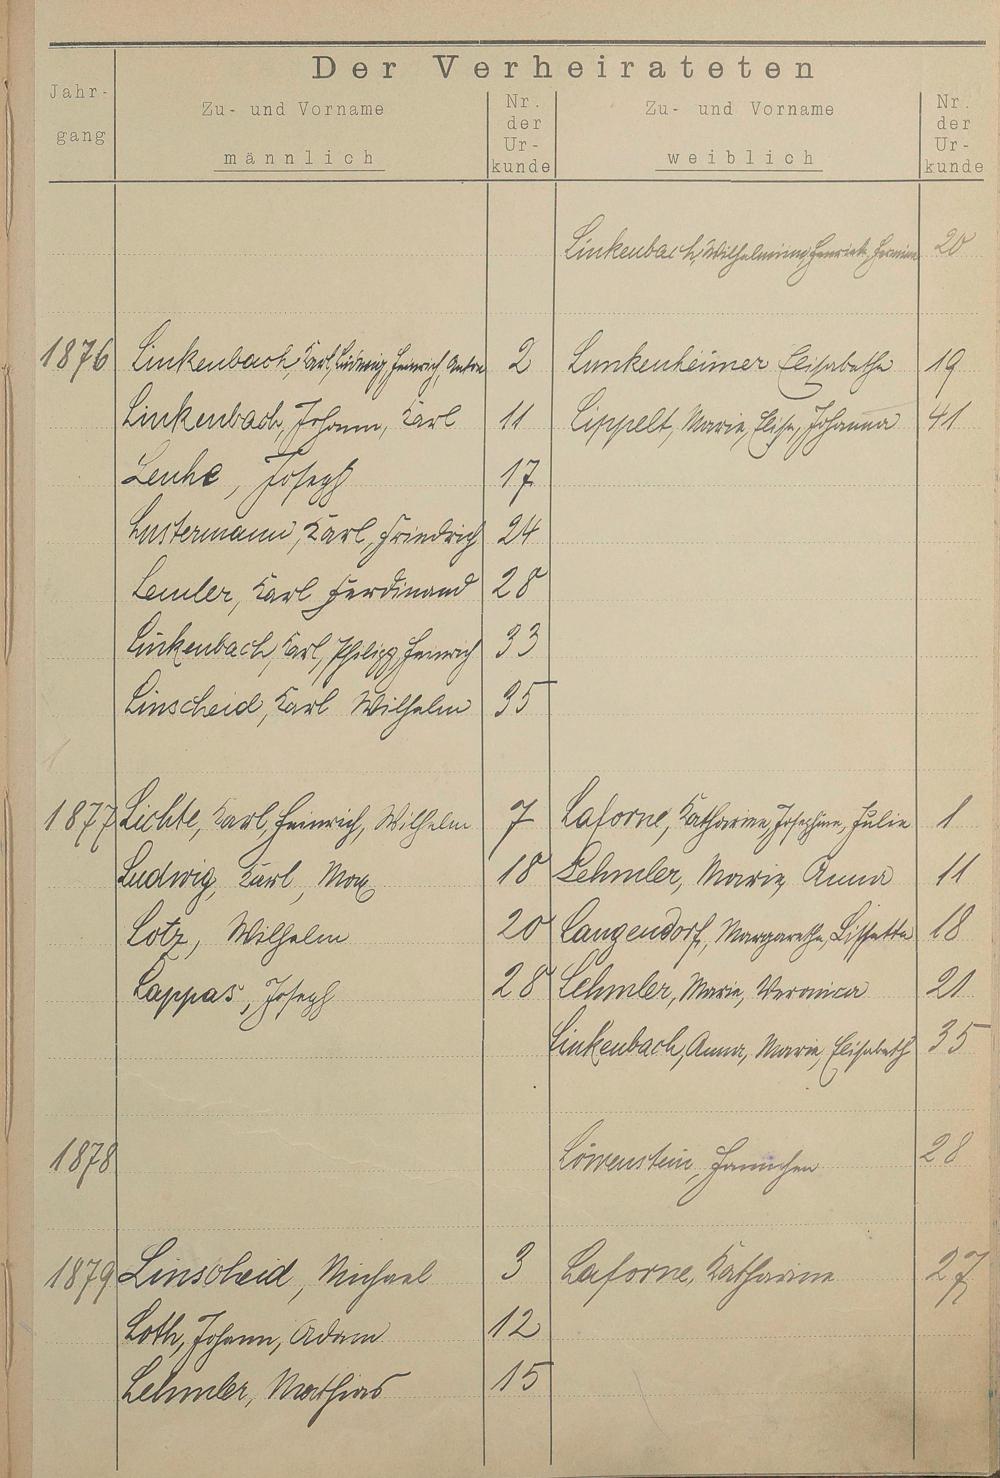 Der Verheirateten
Jahr-
gang
Zu- und Vorname
männlich
Nr.
der
Ur-
kunde
Zu- und Vorname
weiblich
Nr.
der
Ur-
kunde
Linkenbach, Wilhelmine, Henriette, Hermine 20
1876 Linkenbach, Karl, Ludwig, Heinrich, Anton 2 Lunkenheimer Elisabetha 19
Linkenbach, Johann, Karl 11 Lippelt, Marie, Elise, Johanna 41
Joseph 17
Lustermann, Karl, Friedrich 24
Lemler, Karl Ferdinand 28
Linkenbach, Karl, Philipp, Heinrich 33
Linscheid, Karl Wilhelm 35
1877 Lichte, Karl, Heinrich, Wilhelm 7 Laforne, Katharine, Josephine, Julie 1
Ludwig, Karl, Max 18 Lehmler, Marie, Anna 11
Lotz, Wilhelm 20 Langendorf, Margarethe, Lissette 18
Lappas, Joseph 28 Lehmler, Marie, Veronica 21
Linkenbach, Anna, Marie, Elisabeth 35
1878 Löwenstein, Hannchen 28
1879 Linscheid, Michael 3 Laforne, Katharine 27
Loth, Johann, Adam 12
Lehmler, Mathias 15